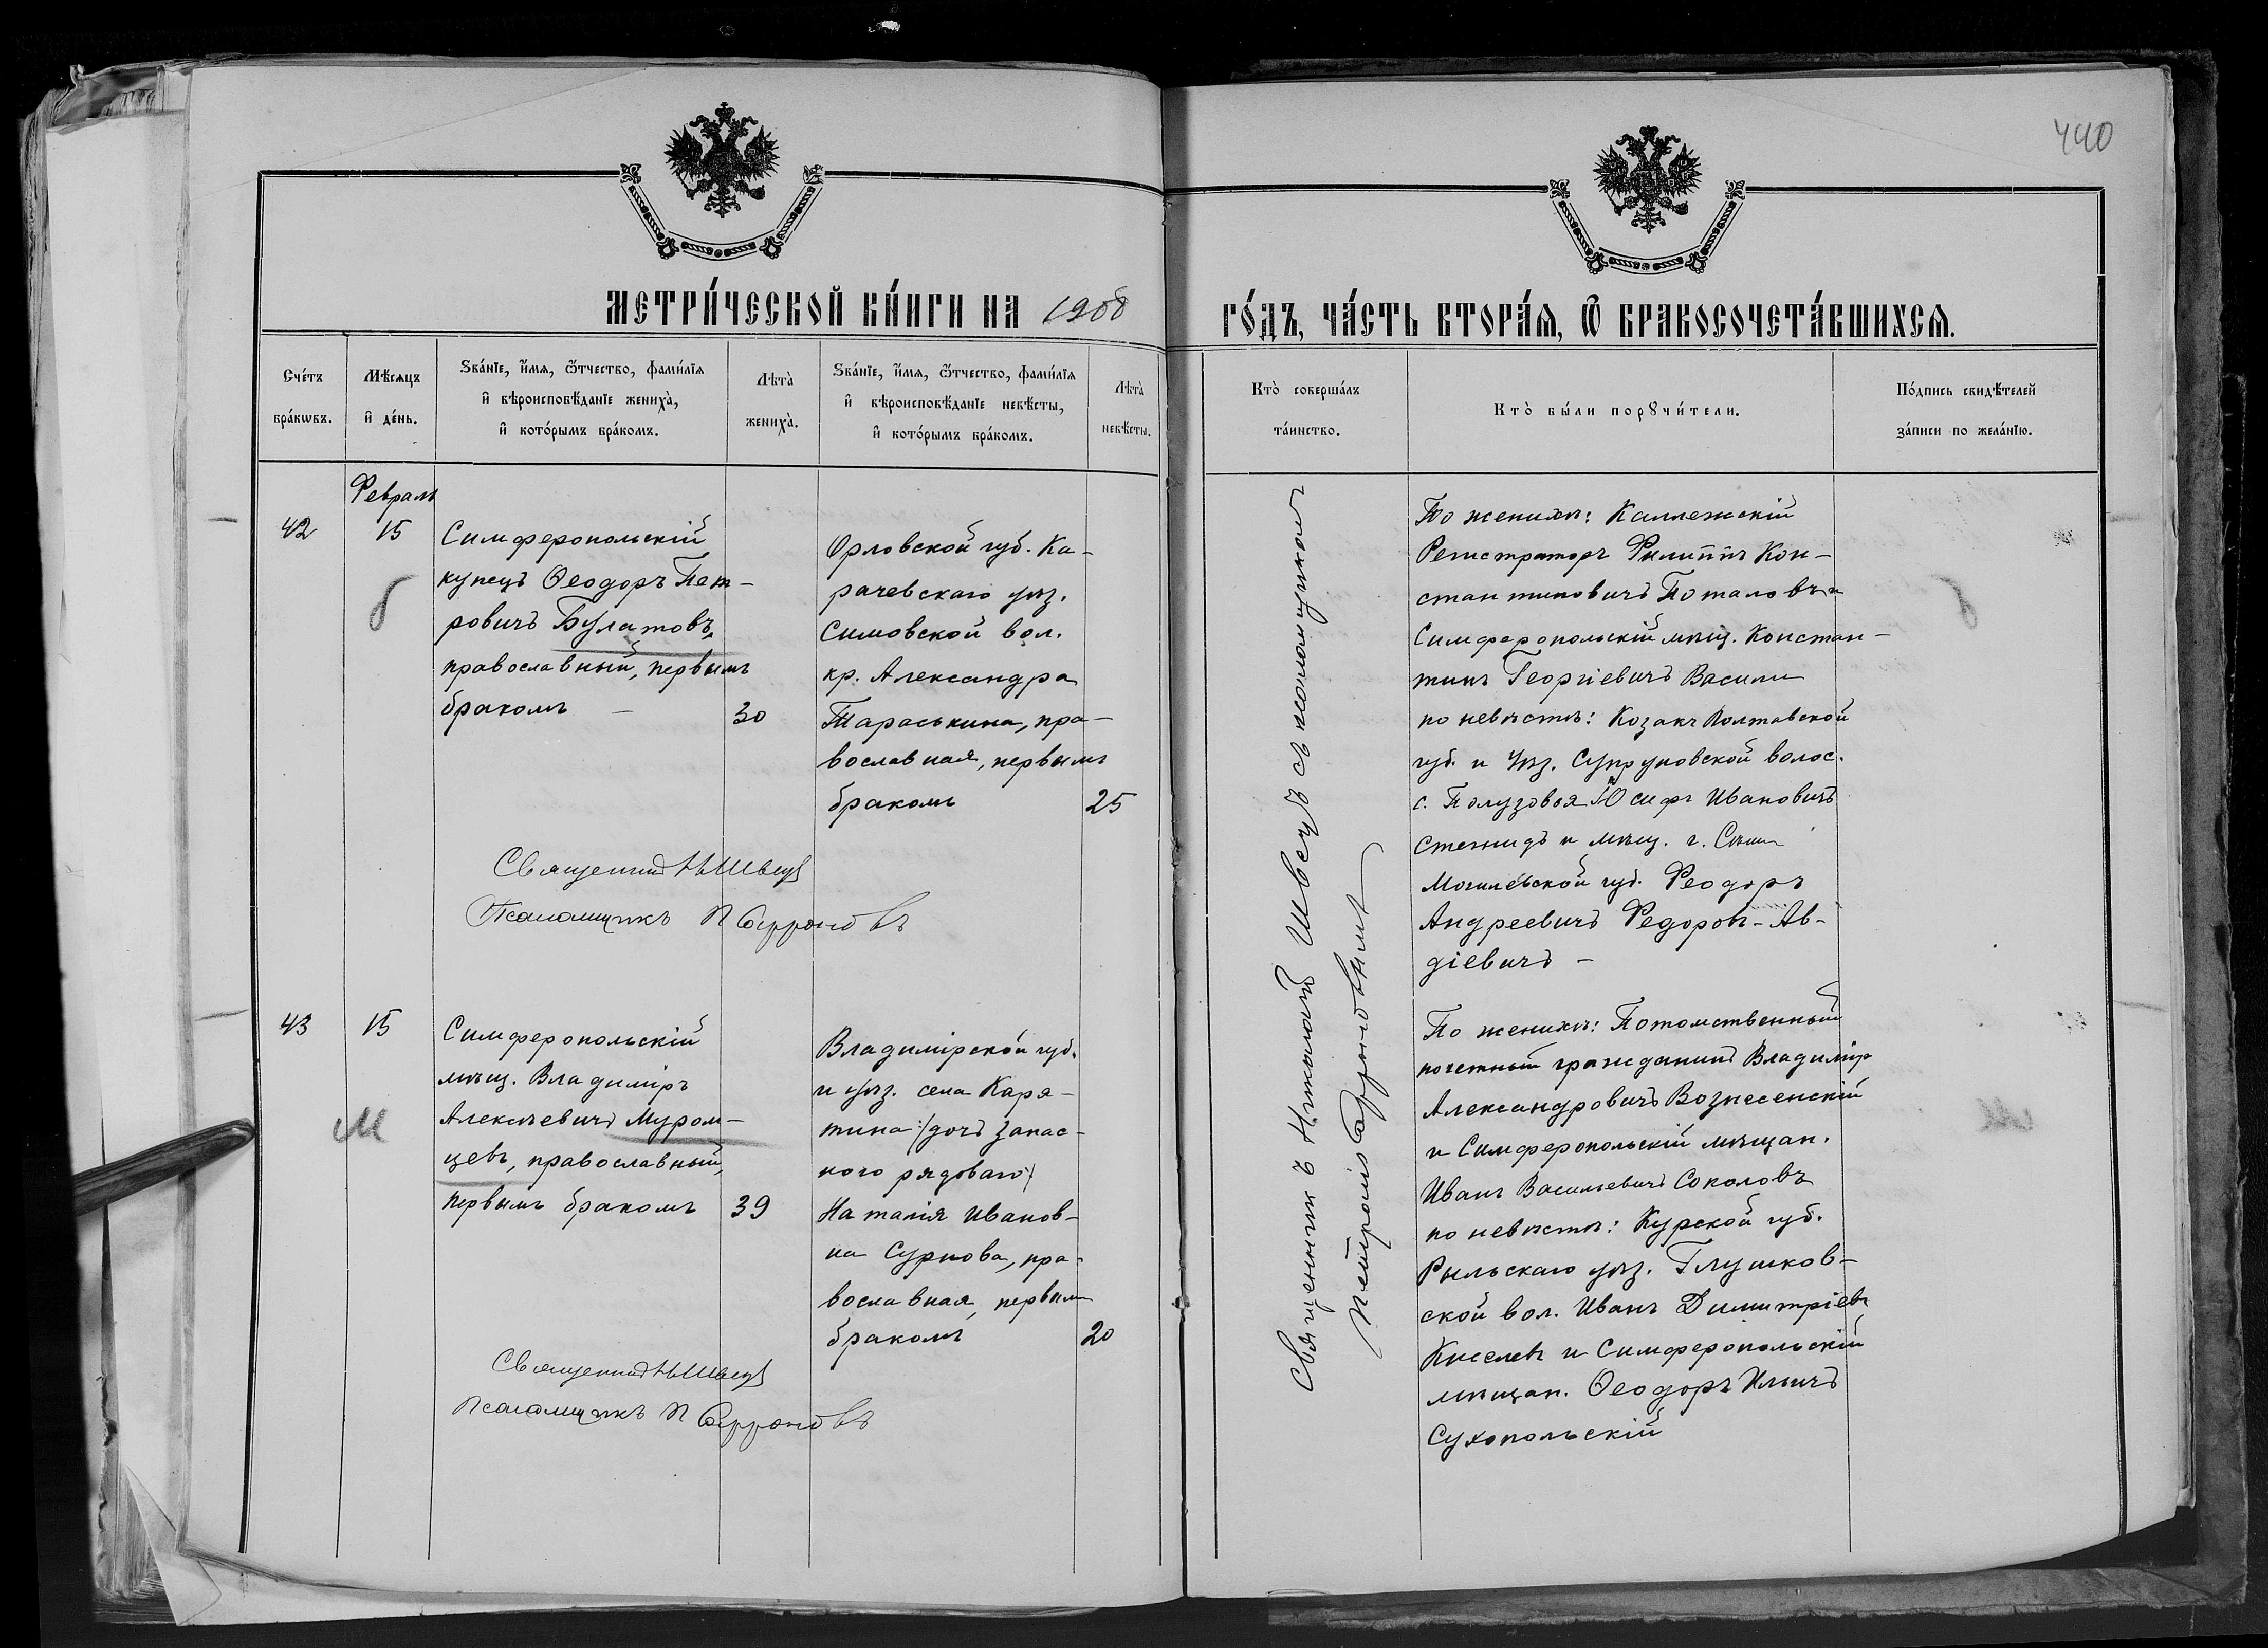 440
МЕТРИ́ЧЕСКОЙ КНИ́ГИ НА 1908
ГО́ДЪ, ЧА́СТЬ ВТОРА́Я, Ѿ БРАКОСОЧЕТА́ВШИХСЯ.
Сче́тъ
бра́кѡвъ.
Мѣ́сяцъ
и҆ де́нь.
Ѕва́нїе, и҆́мя, ѻ҆́тчество, фами́лїя
и҆ вѣроисповѣ́данїе жениха̀,
и҆ кото́рымъ бра́комъ.
Лѣта̀
жениха̀.
Ѕва́нїе, и҆́мя, ѻ҆́тчество, фами́лїя
и҆ вѣроисповѣ́данїе невѣ́сты,
и҆ кото́рымъ бра́комъ.
Лѣта̀
невѣ́сты.
Кто̀ соверша́лъ
та́инство.
Кто̀ бы́ли порꙋчи́тели.
По́дпись свидѣ́телей
за́писи по жела́нїю.
Февраль
42
15
б
Симферопольскій
купецъ Ѳеодоръ Пет-
ровичъ Булатовъ,
православный, первымъ
бракомъ —
30
Орловской губ. Ка-
рачевскаго уѣз.
Симовской вол.
кр. Александра
Тараськина, пра-
вославная, первымъ
бракомъ
25
Священникъ Н Швецъ
Псаломщикъ П Сафроновъ
Священникъ Николай Швецъ съ псаломщикомъ
Петромъ Сафроновымъ
По женихѣ: Каллежскій
Регистраторъ Филиппъ Кон-
стантиновичъ Поталовъ и
Симферопольскій мѣщ. Констан-
тинъ Георгіевичъ Васили
по невѣстѣ: Козакъ Полтавской
губ. и Уѣз. Супруновской волос.
с. Полузовья Іосифъ Ивановичъ
Стенидъ и мѣщ. г.
Могилевской губ. Феодоръ
Андреевичъ Федоров-Ав-
діевичъ —
б
43
15
М
Симферопольскій
мѣщ. Владиміръ
Алексѣевичъ Муром-
цевъ, православный,
первымъ бракомъ
39
Владимірской губ.
и уѣз. села Каря-
кина /: дочъ запас-
ного рядоваго :/
Наталія Иванов-
на Сурнова, пра-
вославная, первымъ
бракомъ
20
Священникъ Н Швецъ
Псаломщикъ П Сафроновъ
По женихѣ: Потомственный
почетный гражданинъ Владиміръ
Александровичъ Вознесенскій
и Симферопольскій мѣщан.
Иванъ Васильевичъ Соколовъ
по невѣстѣ: Курской губ.
Рыльскаго уѣз. Глушков-
ской вол. Иванъ Димитріевъ
Киселевъ и Симферопольскій
мѣщан. Ѳеодоръ Ильичъ
Сухопольскій
М